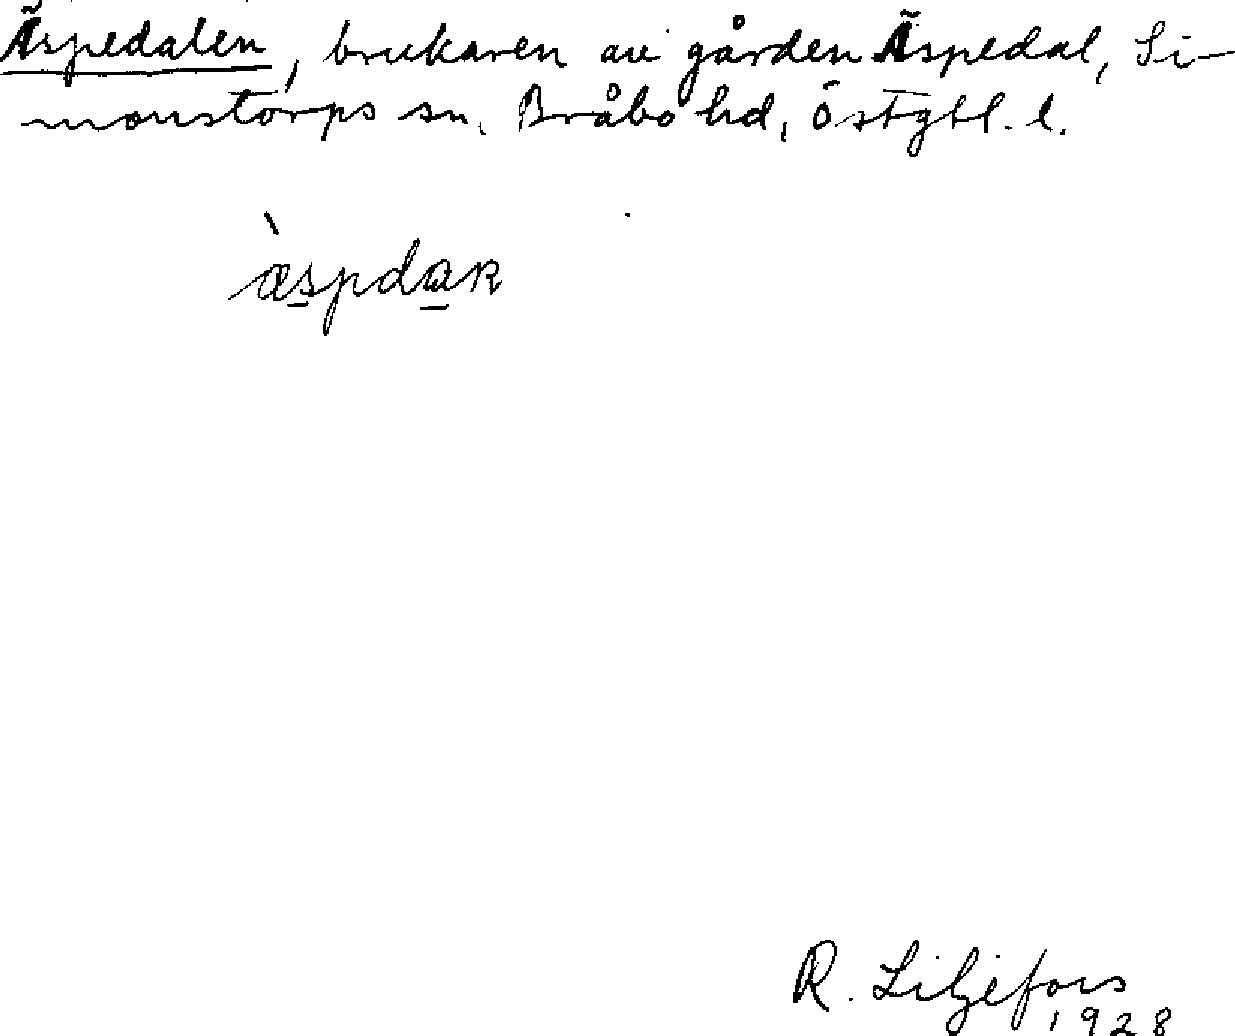 Äspedalen, brukaren av gården Äspedal, Si-
monstorps sn. Bråbo hd, Östgtl. l.
R. Liljefors
1928